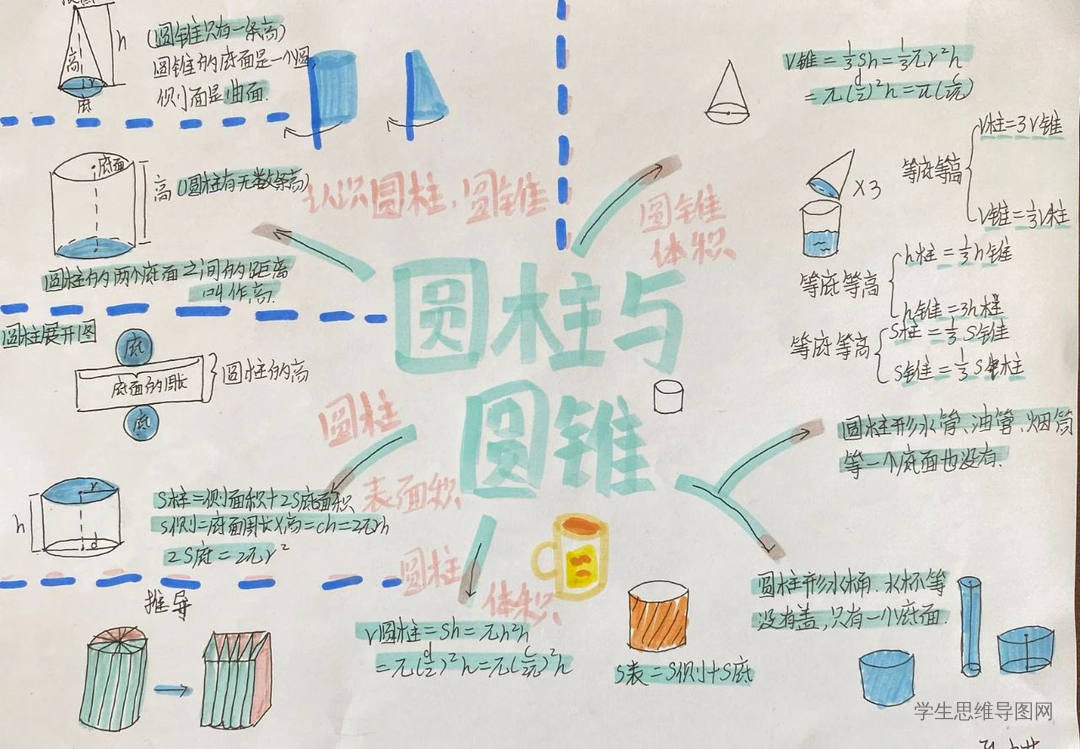 h
高
r
底
(圆锥只有一条高)
圆锥的底面是一个圆,
侧面是曲面.
底面
高(圆柱有无数条高)
圆柱的两个底面之间的距离
叫作高.
认识圆柱、圆锥
圆柱展开图
底
底面的周长
圆柱的高
底
圆柱与
圆锥
圆柱
表面积
h
r
d
S柱=侧面积+2S底面积
S侧=底面周长×高=ch=2πrh
2S底=2πr²
推导
圆柱
体积
V圆柱=Sh=πh²h
=π(d/2)²h=π(C/2π)²h
圆锥
体积
V锥=1/3Sh=1/3πr²h
=π(d/2)²h=π(C/2π)
X3
等底等高
V柱=3V锥
V锥=1/3V柱
等底等高
h柱=1/3h锥
h锥=3h柱
等底等高
S柱=1/3S锥
S锥=1/3S柱
圆柱形水管、油管、烟筒
等一个底面也没有.
圆柱形水桶.水杯等
没有盖,只有一个底面.
S表=S侧+S底
学生思维导图网